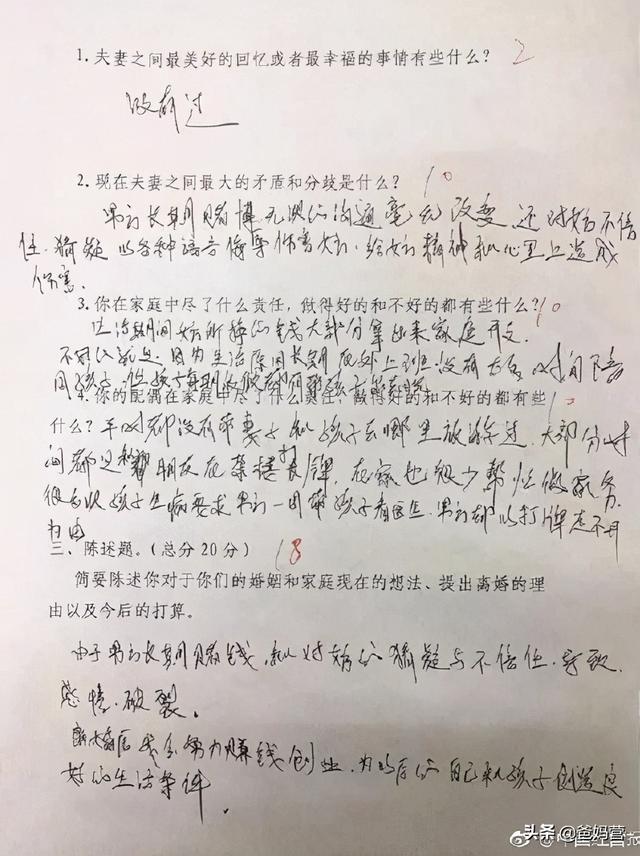 1.夫妻之间最美好的回忆或者最幸福的事情有些什么？ 2
没有过
2.现在夫妻之间最大的矛盾和分歧是什么？ 10
男方长期赌博无法沟通毫无改变还对女方不信
任.猜疑以各种语言侮辱伤害女方.给女方精神和心里上造成
伤害.
3.你在家庭中尽了什么责任，做得好的和不好的都有些什么？10
生活期间女方所挣的钱大部分拿出来家庭开支.
不足的就是.因为生活原因长期在外上班.没有太多时间陪
同孩子.
4.你的配偶在家庭中尽了什么责任，做得好的和不好的都有些 10
什么？平时都没有带妻子和孩子去哪里旅游过.大部分时
间都是和朋友在茶楼打长牌，在家也很少帮忙做家务.
很多次孩子生病要求男方一同带孩子看医生.男方都以打牌走不开
为由
三、陈述题。（总分20分） 18
简要陈述你对于你们的婚姻和家庭现在的想法、提出离婚的理
由以及今后的打算。
由于男方长期赌钱.和对女方的猜疑与不信任.导致
感情.破裂.
离婚后我会努力赚钱创业，为以后的自己和孩子创造良
好的生活条件.
头条 @爸妈营
@中国经营报